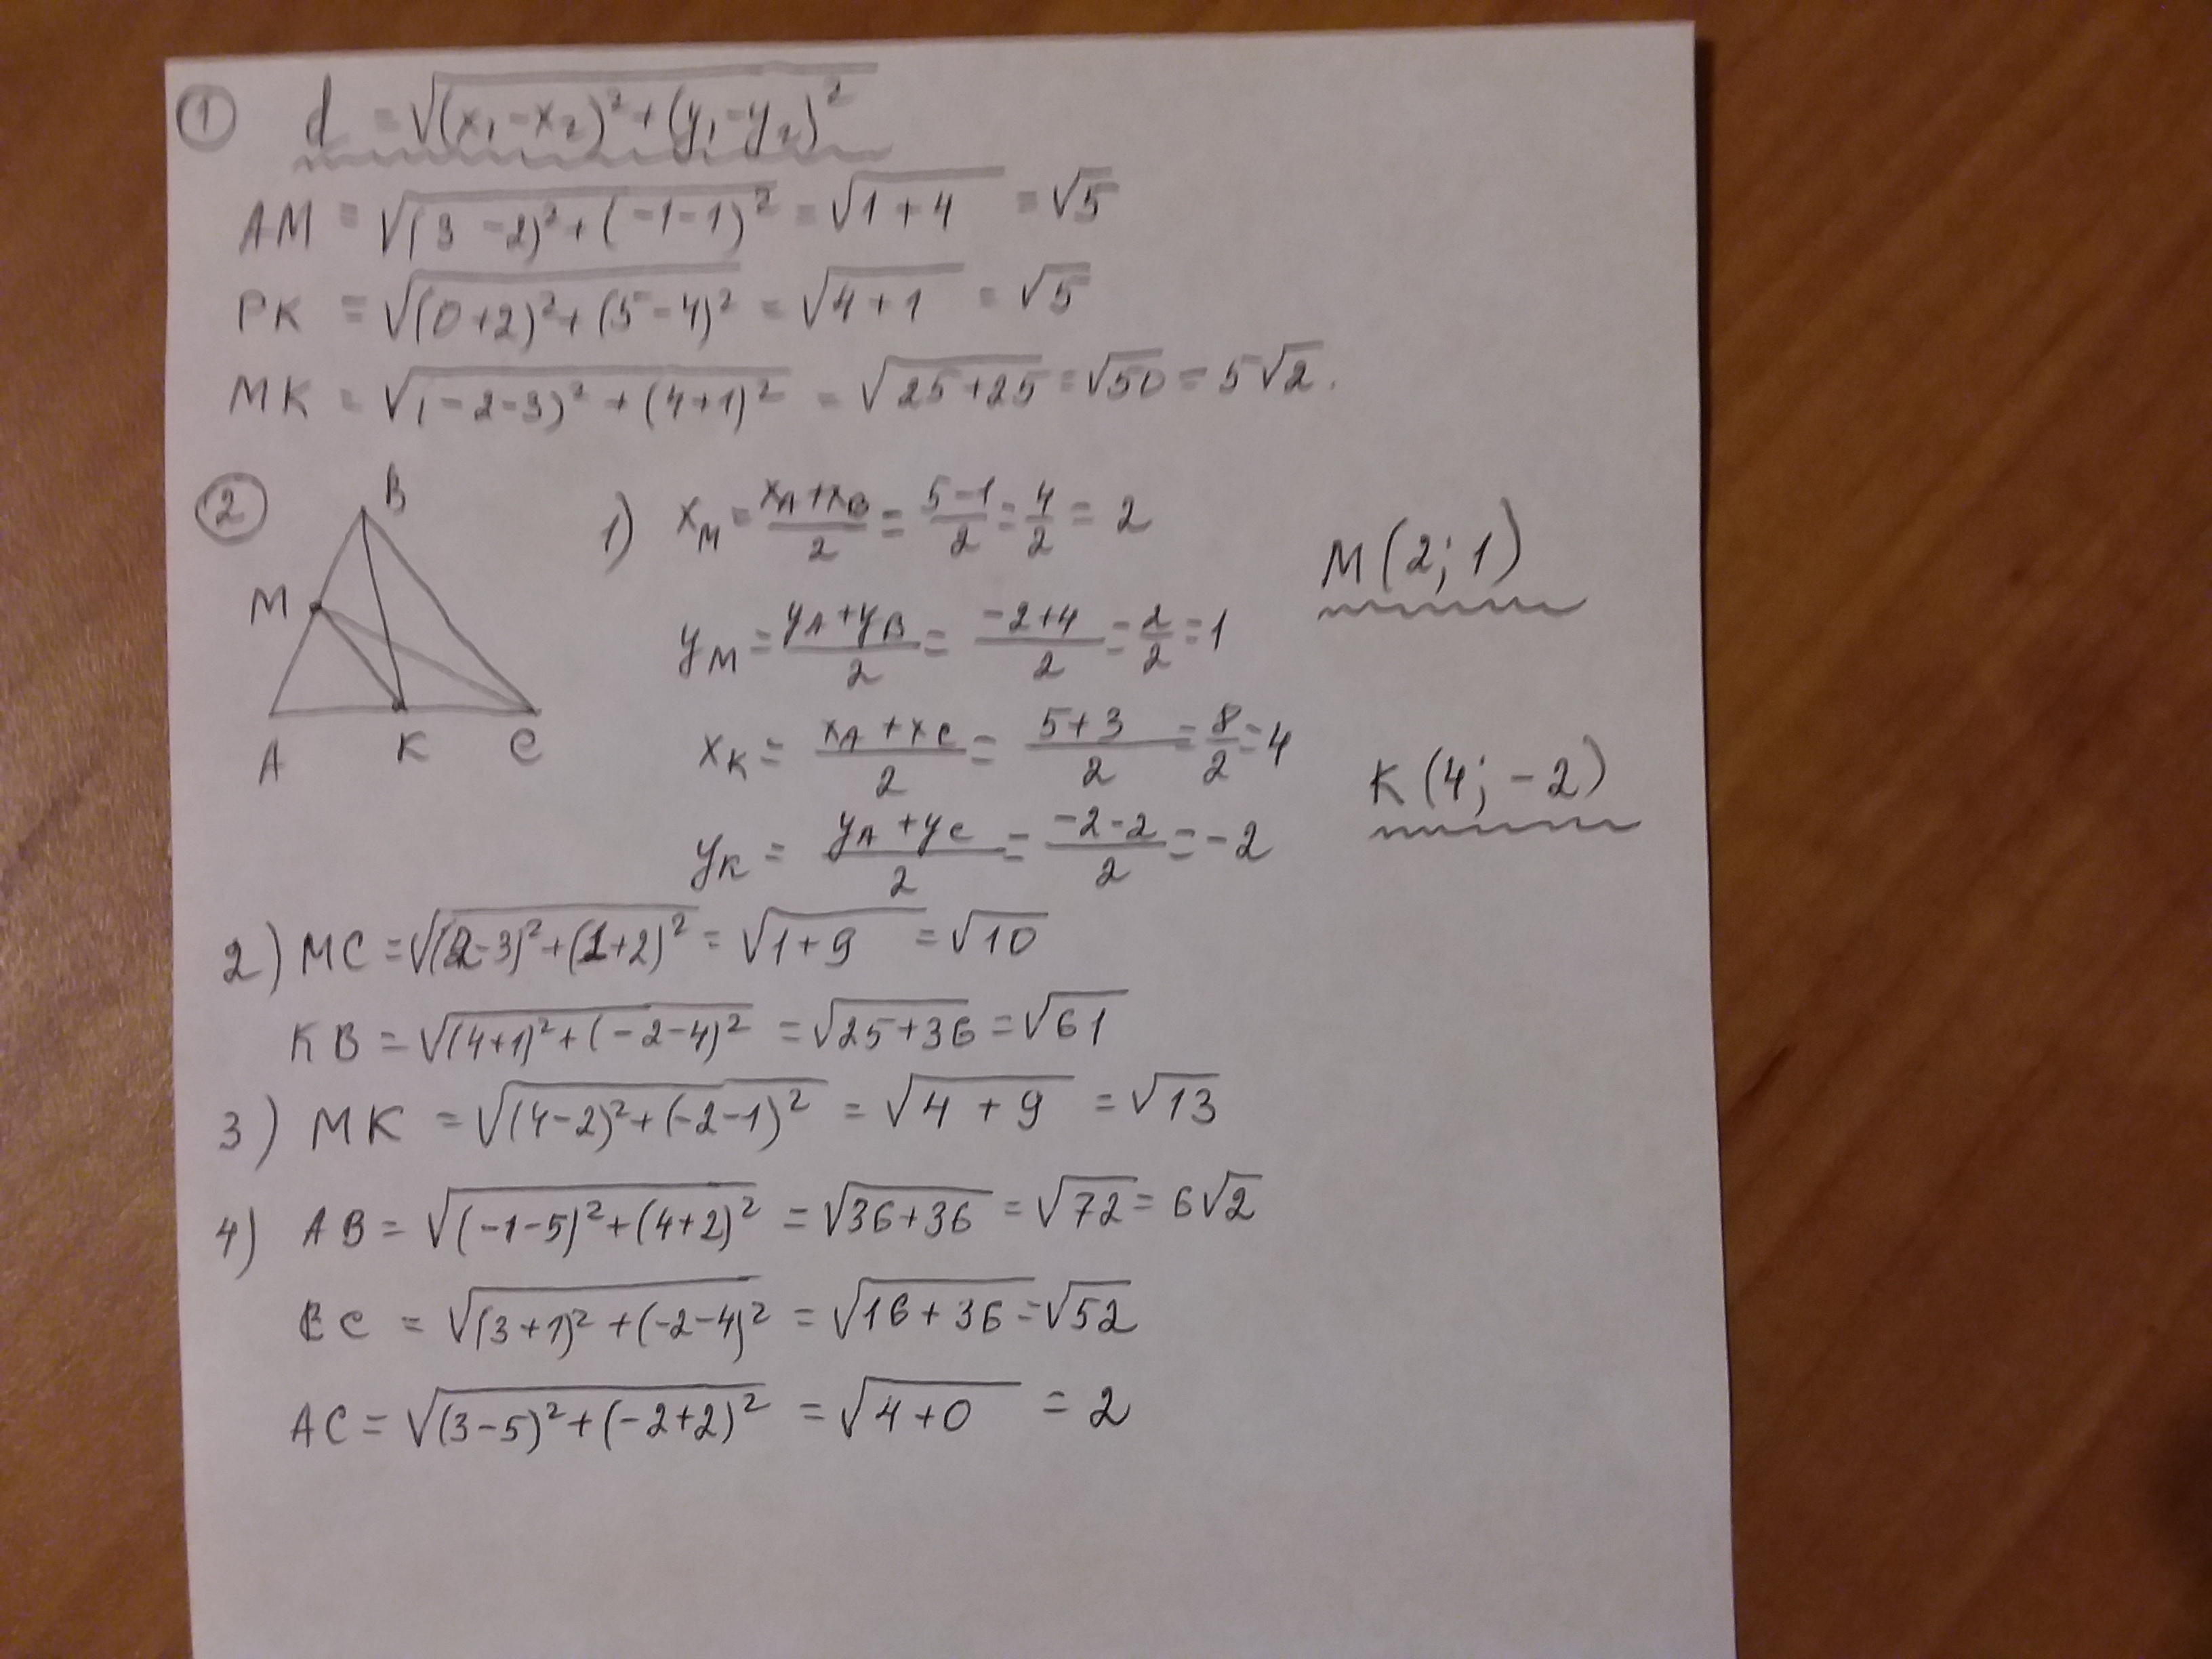 ① d = √(x₁-x₂)²+(y₁-y₂)²
AM = √(3-2)²+(-1-1)² = √1+4 = √5
PK = √(0+2)²+(5-4)² = √4+1 = √5
MK = √(-2-3)²+(4+1)² = √25+25 = √50 = 5√2.
②
B
M
A K C
1) x_M = (x_A+x_B)/2 = (5-1)/2 = 4/2 = 2
M(2;1)
y_M = (y_A+y_B)/2 = (-2+4)/2 = 2/2 = 1
x_K = (x_A+x_C)/2 = (5+3)/2 = 8/2 = 4
K(4;-2)
y_K = (y_A+y_C)/2 = (-2-2)/2 = -2
2) MC = √(2-3)²+(1+2)² = √1+9 = √10
KB = √(4+1)²+(-2-4)² = √25+36 = √61
3) MK = √(4-2)²+(-2-1)² = √4+9 = √13
4) AB = √(-1-5)²+(4+2)² = √36+36 = √72 = 6√2
BC = √(3+1)²+(-2-4)² = √16+36 = √52
AC = √(3-5)²+(-2+2)² = √4+0 = 2